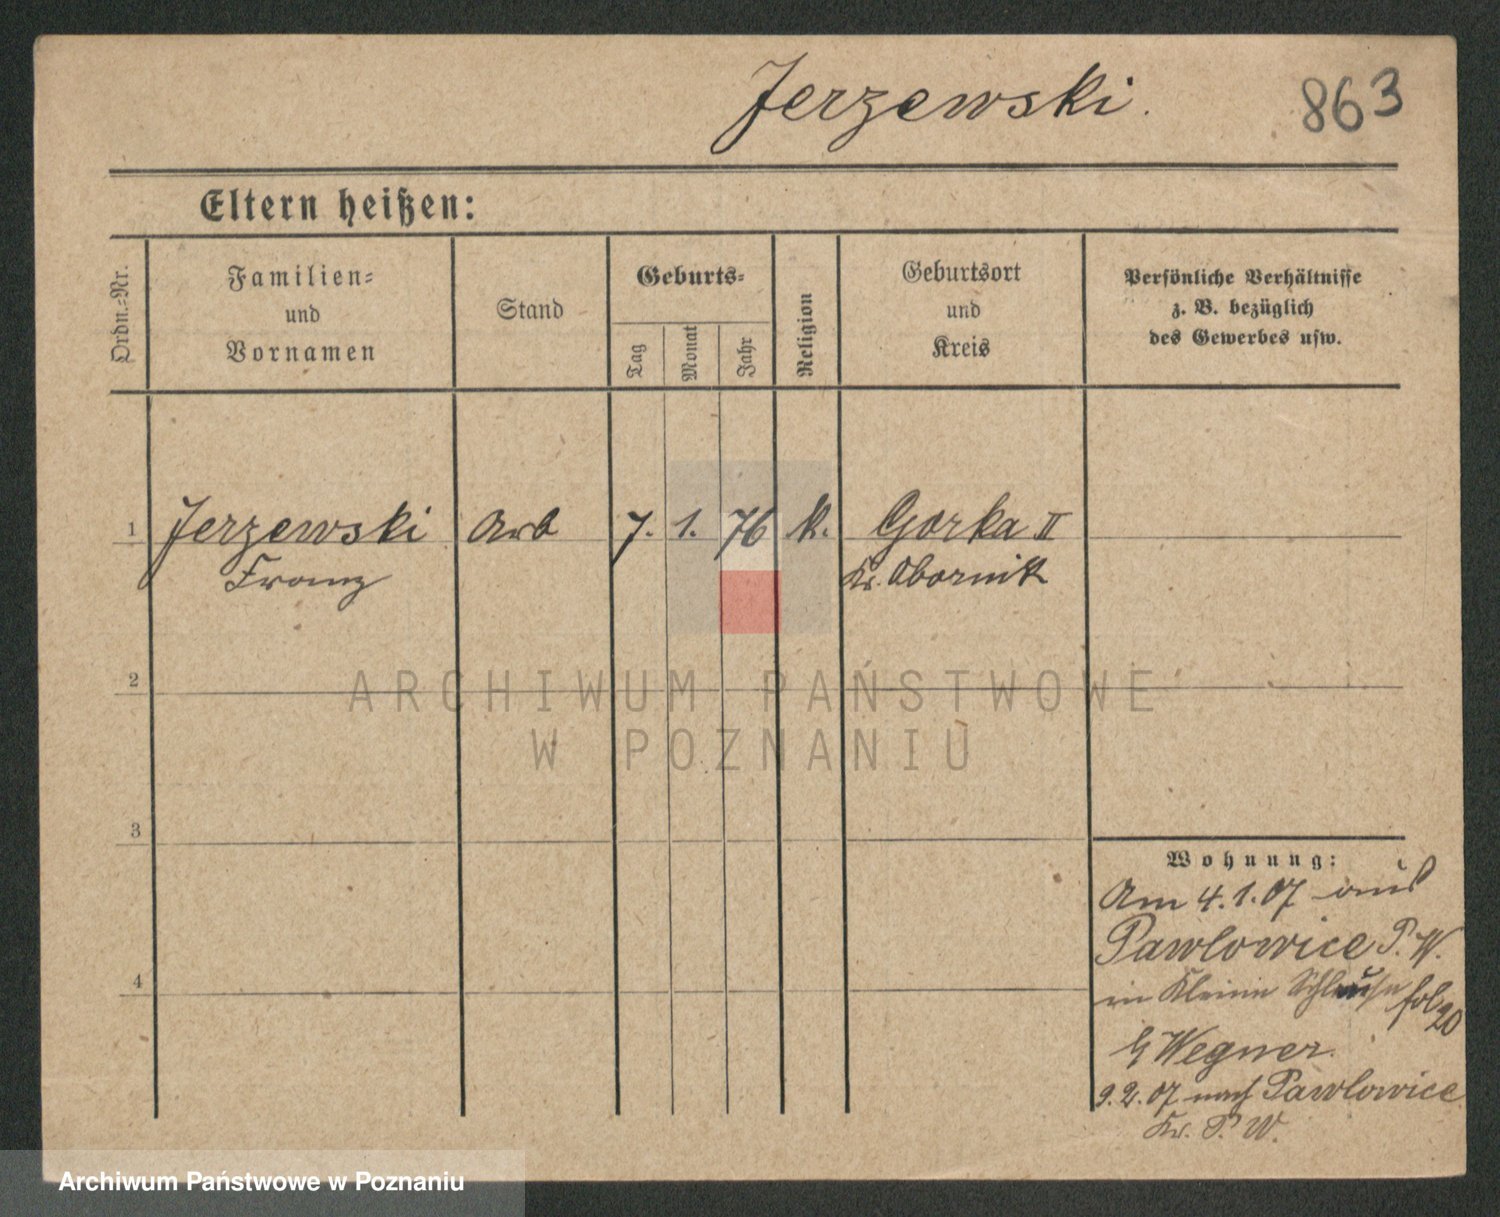 Jerzewski.
863
Eltern heißen:
Ordn.-Nr.
Familien-
und
Vornamen
Stand
Geburts-
Tag
Monat
Jahr
Religion
Geburtsort
und
Kreis
Persönliche Verhältnisse
z. B. bezüglich
des Gewerbes usw.
1 Jerzewski Arb 7. 1. 76 k. Gorka II
Franz Kr. Obornik
2
3
4
Wohnung:
Am 4.1.07 aus
Pawlowice P. W.
in Kleine Schleuse fol 20
b Wegner.
9.2.07 nach Pawlowice
Kr. P. W.
ARCHIWUM PAŃSTWOWE
W POZNANIU
Archiwum Państwowe w Poznaniu